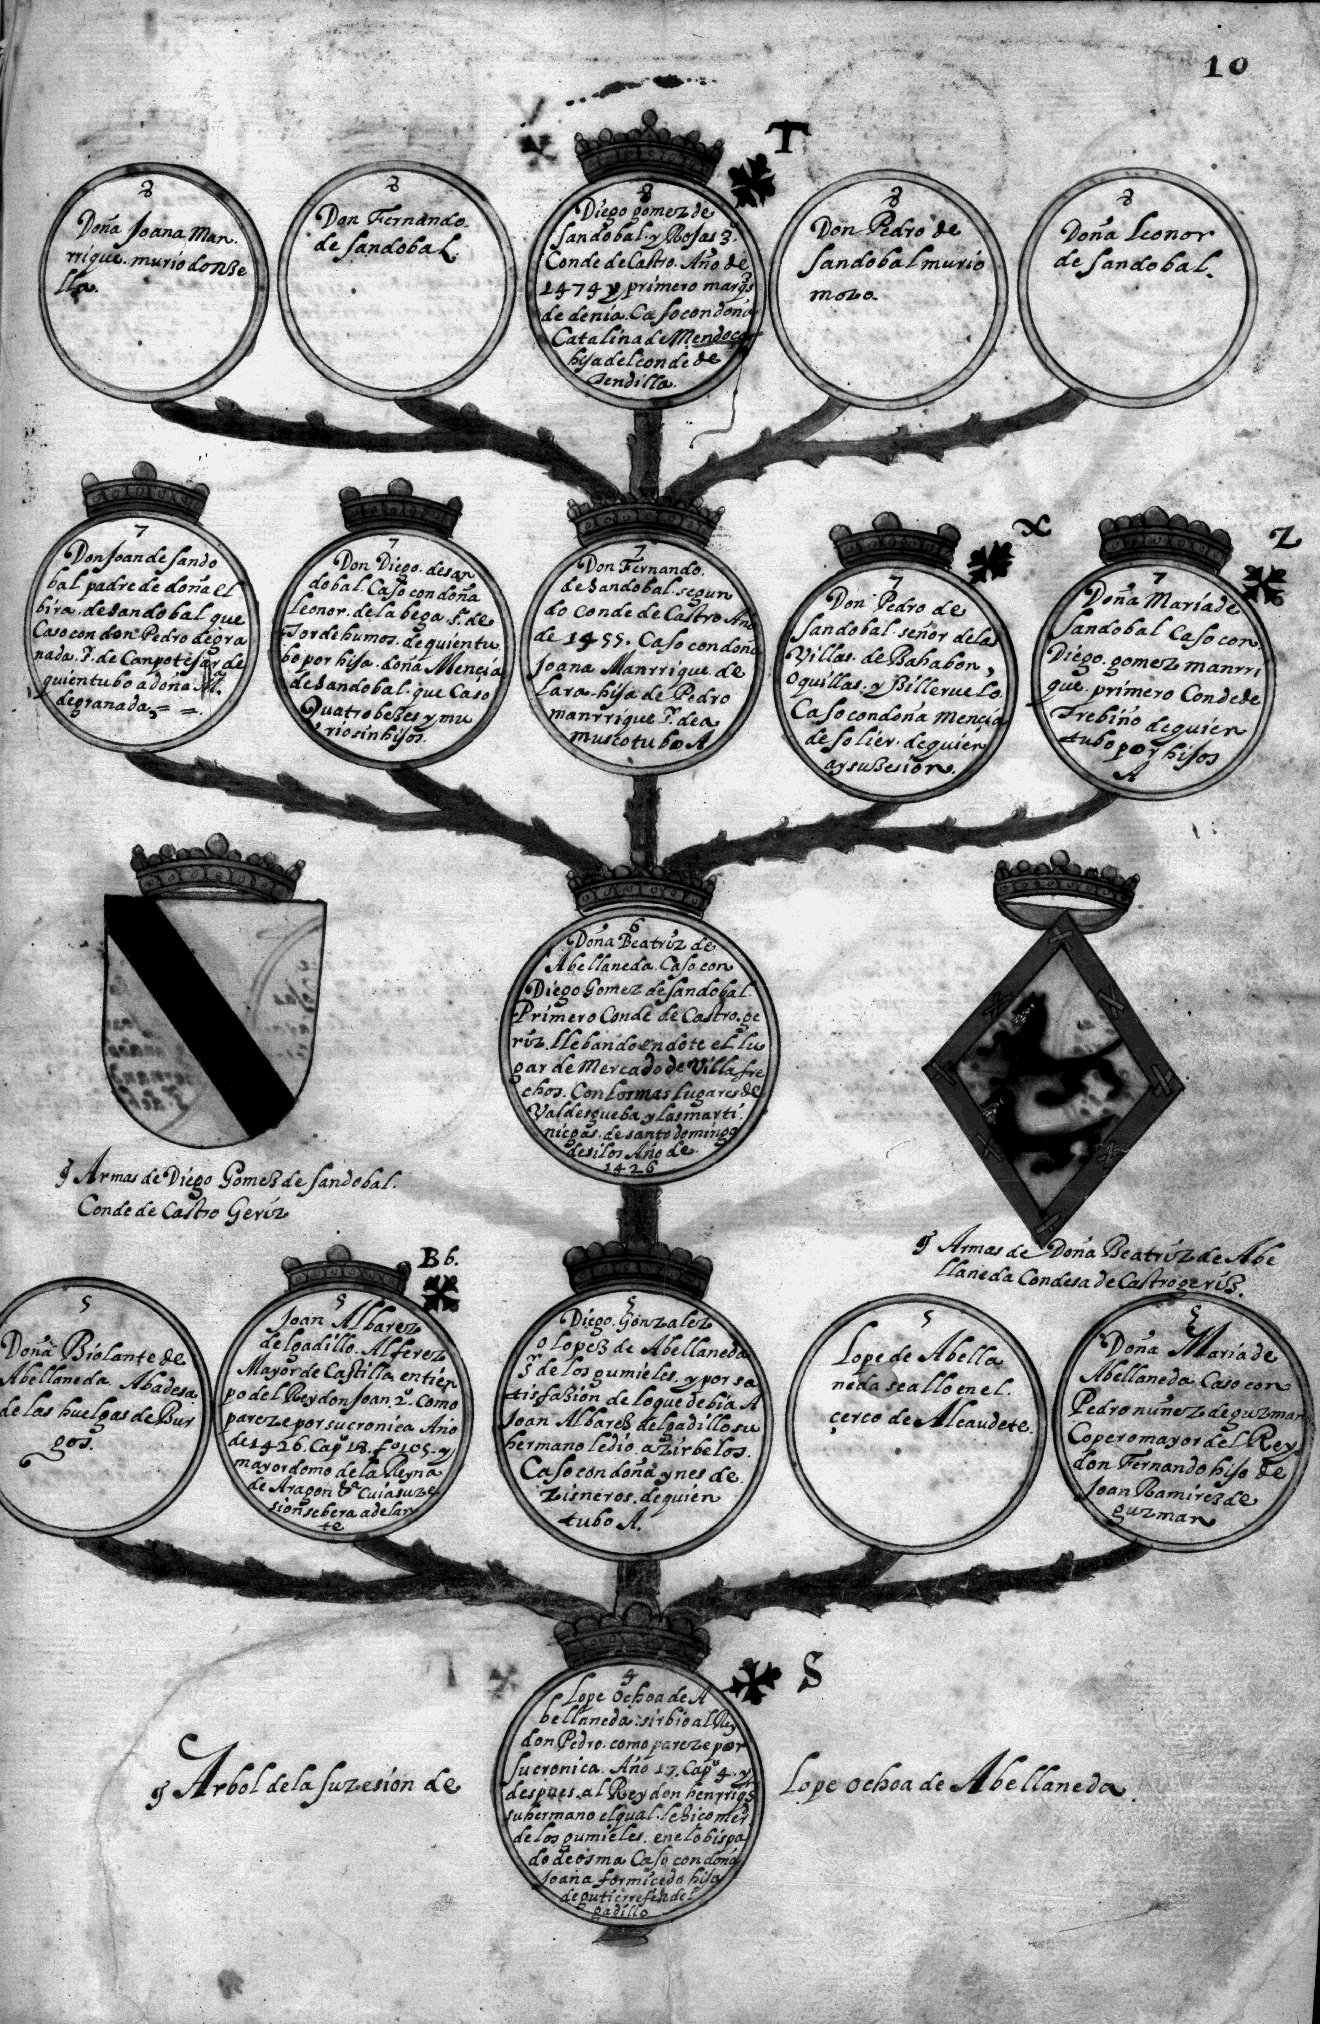 10
T
8
Doña Joana Man
rrique. murio donze
lla.
8
Don Fernando.
de sandobal.
8
Diego gomez de
sandobal y Rojas 3.
Conde de Castro. Año de
1474 y primero marqs
de denia. Caso con doña
Catalina de Mendoça
hija del conde de
Tendilla.
8
Don Pedro de
sandobal murio
mozo.
8
Doña Leonor
de sandobal.
7
Don Joan de sando
bal padre de doña el
bira. de sandobal que
Caso con don Pedro de gra
nada. sr. de Canpotejar de
quien tubo a doña M.
de granada, = =.
7
Don Diego. de san
dobal. Caso con doña
Leonor. de la bega sra. de
Tordehumos. de quien tu
bo por hija. doña Mencia
de sandobal. que Caso
Quatro bezes y mu
rio sin hijos.
7
Don Fernando.
de sandobal. segun
do conde de Castro Año
de 1455. Caso con doña
Joana Manrrique de
Lara. hija de Pedro
manrrique sr. de a
musco tubo A
X
7
Don Pedro de
sandobal. señor de las
Villas. de Bahabon,
oquillas. y Billeruelo.
Caso con doña mencia
de solier. de quien
ay suzesion.
Z
7
Doña Maria de
sandobal Caso con
Diego. gomez manrri
que. primero Conde de
Trebiño de quien
tubo por hijos
A
6
Doña Beatriz de
Abellaneda. Caso con
Diego Gomez de sandobal.
Primero Conde de Castro. ge
riz. llebando en dote el lu
gar de Mercado de Villa fre
chos. Con los mas lugares de
Valdesgueba y las marti
niegas. de santo domingo
de silos Año de
1426
Armas de Diego Gomez de sandobal.
Conde de Castro Geriz
Armas de Doña Beatriz de Abe
llaneda Condesa de Castrogeriz.
5
Doña Biolante de
Abellaneda Abadesa
de las huelgas de Bur
gos.
B6.
5
Joan Albarez
delgadillo. Alferez
Mayor de Castilla en tien
po del Rey don Joan 2º. Como
pareze por su cronica Año
de 1426. Capº 18. fº 105. y
mayordomo de la Reyna
de Aragon Cuia suze
sion se bera adelan
te
5
Diego. Gonzalez
o Lopez de Abellaneda
sr. de los gumieles. y por sa
tisfazion de lo que debia A
Joan Albarez delgadillo su
hermano le dio. a zirbelos.
Caso con doña ynes de.
Zisneros. de quien
tubo A.
5
Lope de Abella
neda se allo en el.
çerco de Alcaudete.
5
Doña Maria de
Abellaneda Caso con
Pedro nuñez de guzman
Copero mayor del Rey
don Fernando hijo de
Joan Ramirez de
guzman
S
4
Lope ochoa de A
bellaneda: sirbio al Rey
don Pedro. como pareze por
su cronica. Año 17. Capº 4. y
despues. al Rey don henrrique
su hermano el qual. le hizo mer
de los gumieles. en el obispa
do de osma Caso con doña
Joana formicedo hija
de gutierre del
gadillo
Arbol de la suzesion de Lope ochoa de Abellaneda.